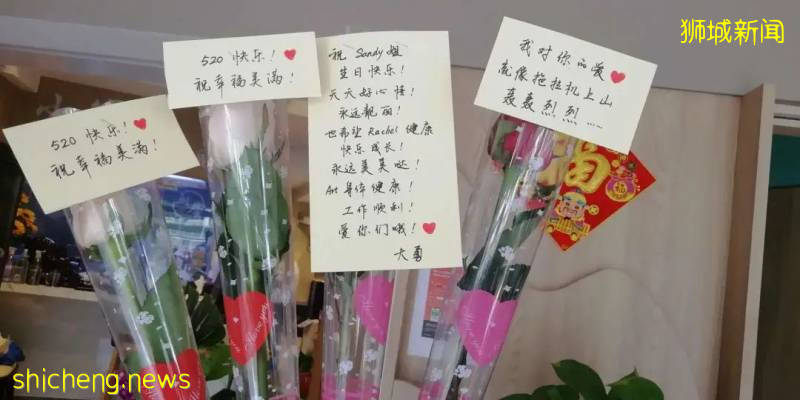 狮城新闻
520 快乐！
祝幸福美满！
520 快乐！
祝幸福美满！
祝 Sandy姐
生日快乐！
天天好心情！
永远靓丽！
也希望 Rachel 健康
快乐成长！
永远美美哒！
身体健康！
工作顺利！
爱你们哦！
大勇
我对你的爱
就像拖拉机上山
轰轰烈烈……
福
shicheng.news